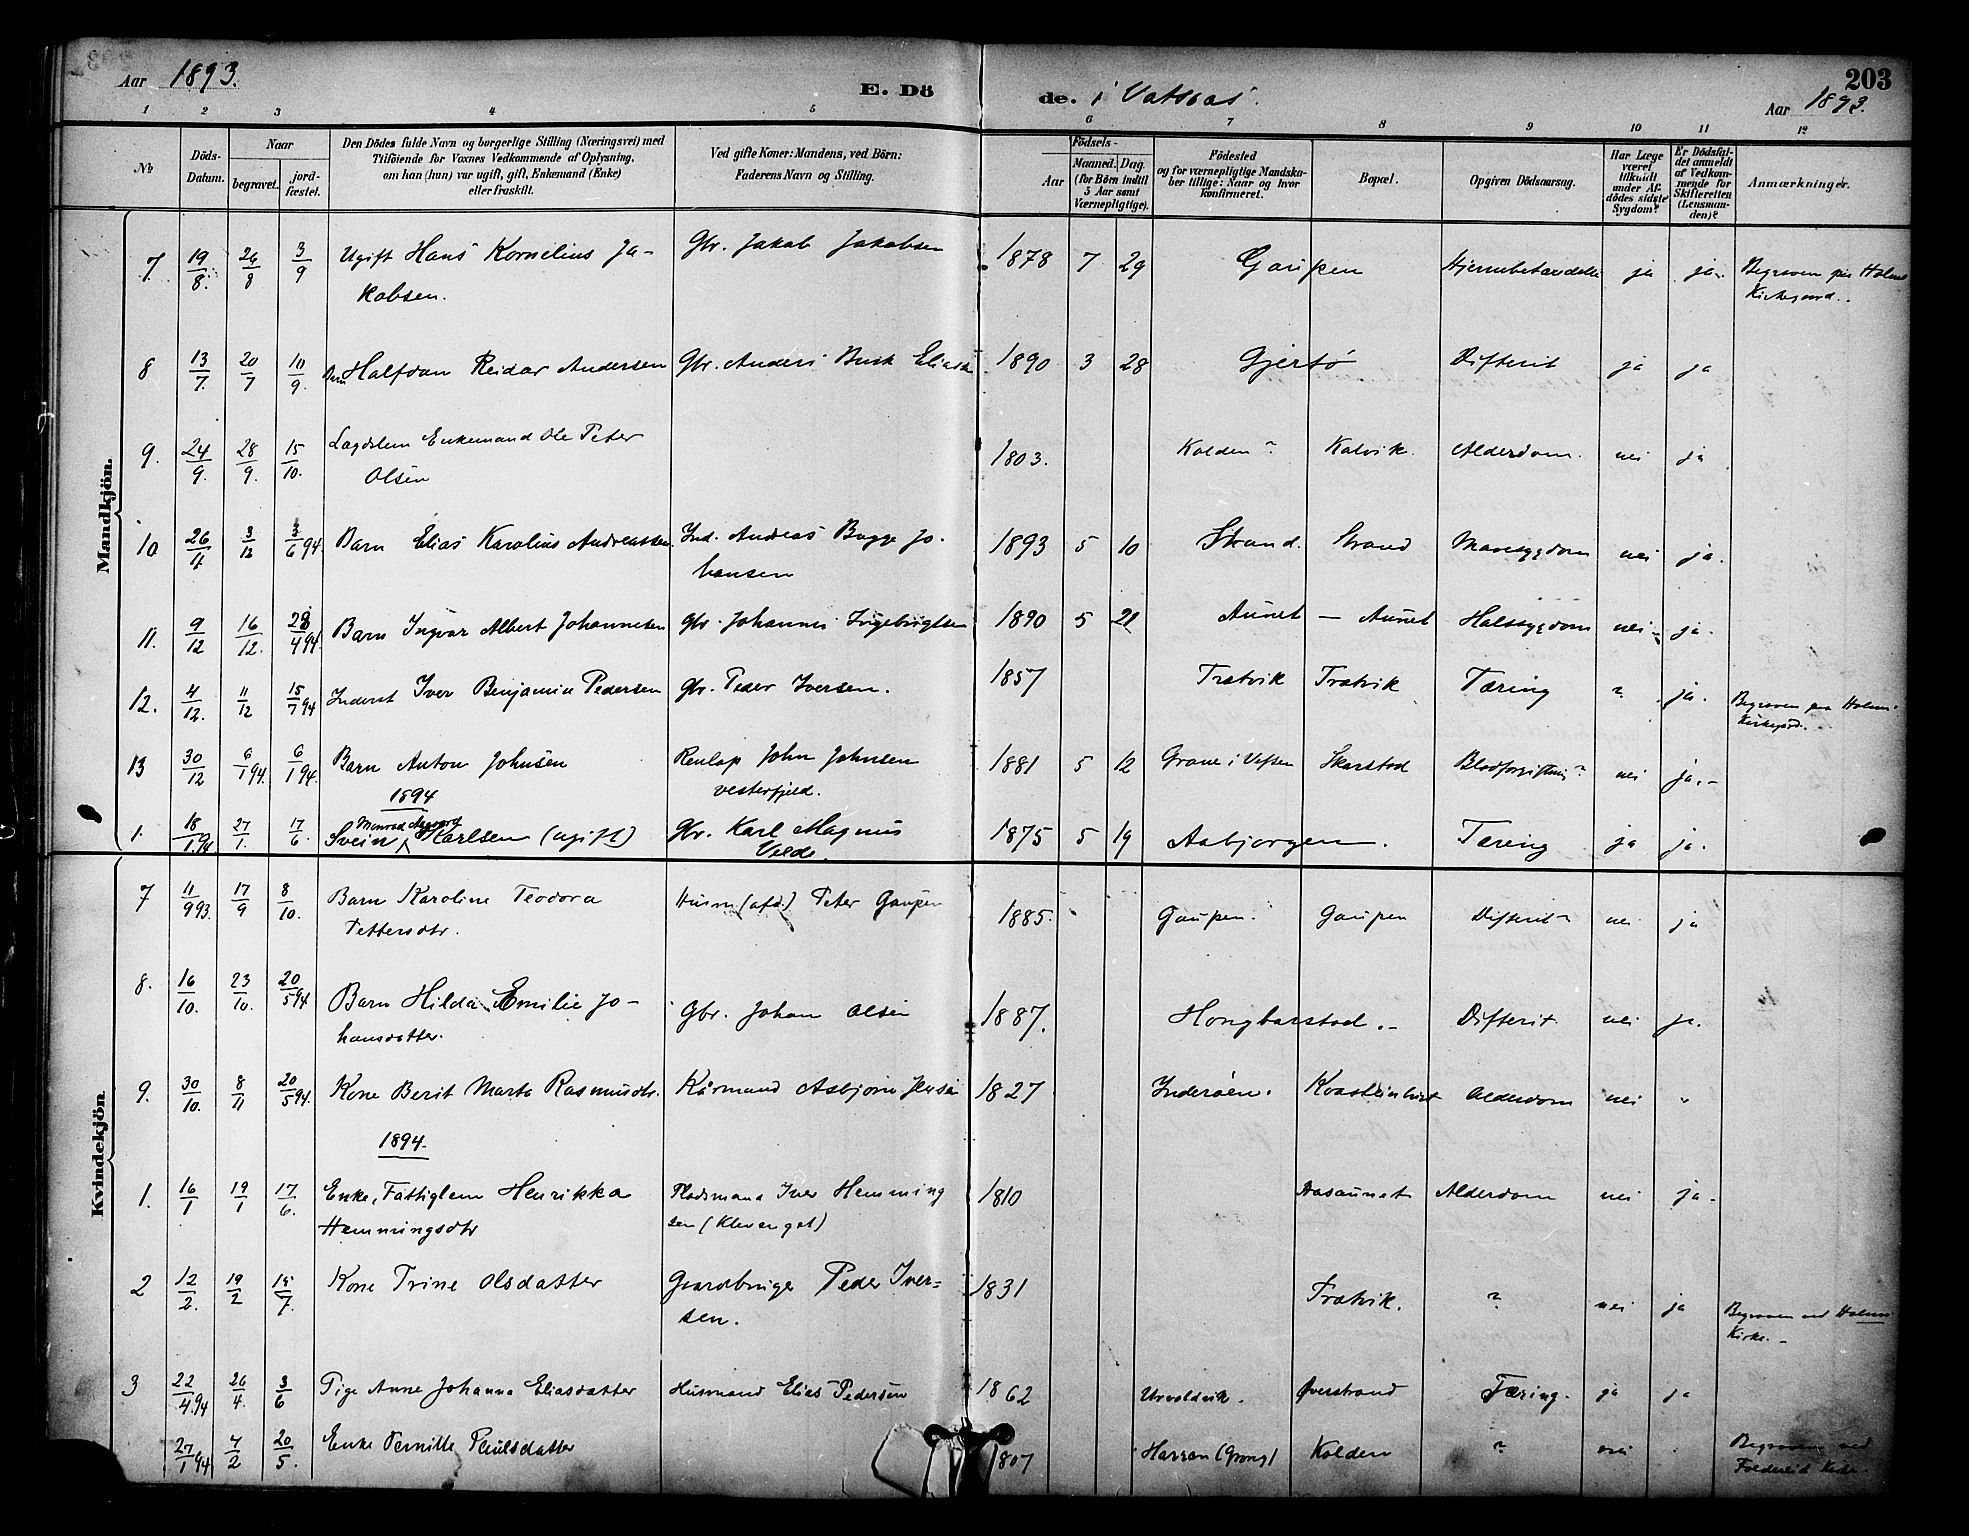 Aar 1893.
E. Döde. i Vatsaas.
Aar 1893.
203
1 2 3 4 5 6 7 8 9 10 11 12
No
Döds-Datum.
Naar
begravet.
jord-fæstet.
Den Dödes fulde Navn og borgerlige Stilling (Næringsvei) med
Tilföiende for Voxnes Vedkommende af Oplysning,
om han (hun) var ugift, gift, Enkemand (Enke)
eller fraskilt.
Ved gifte Koner: Mandens, ved Börn:
Faderens Navn og Stilling.
Födsels-
Aar
Maaned. Dag.
(for Börn indtil
5 Aar samt
Værnepligtige).
Födested
og for værnepligtige Mandska-
ber tillige: Naar og hvor
konfirmeret.
Bopæl.
Opgiven Dödsaarsag.
Har Læge
været
tilkaldt
under Af-
dödes sidste
Sygdom?
Er Dödsfal-
det anmeldt
af Vedkom-
mende for
Skifteretten
(Lensman-
den)?
Anmærkninger.
Mandkjön.
7 19/8. 26/8 3/9 Ugift Hans Kornelius Ja- Gbr. Jakob Jakobsen 1878 7 29 Gaupen Hjernebetændelse ja ja. Begraven paa Holms
kobsen. Kirkegaard.
8 13/7. 20/7 10/9. Barn Halfdan Reidar Andersen Gbr. Anders Busk Eliassen 1890 3 28 Gjersø Difterit ja ja
9. 24/9. 28/9. 15/10. Lægdslem Enkemand Ole Peter 1803. Kolden? Kalvik. Alderdom. nei ja
Olsen
10 26/11. 3/12 3/6 94. Barn Elias Karolius Andreassen. Ind. Andreas Bugge Jo- 1893 5 10 Strand. Strand Mavesygdom nei ja.
hansen
11. 9/12 16/12. 28/4 94. Barn Ingvar Albert Johannesen Gbr. Johannes Ingebrigtsen 1890 5 21 Aunet — Aunet Halssygdom nei - ja.
12. 4/12. 11/12 15/7 94 Inderst Iver Benjamin Pedersen Gbr. Peder Iversen. 1857 Tratvik Tratvik Tæring ? ja. Begraven paa Holms
Kirkegård.
13 30/12 6/1 94. 6/1 94. Barn Anton Johnsen Renlap John Johnsen 1881 5 12 Grane i Vefsen Skarstad Blodforgiftning? nei ja.-
vesterfjeld.
1894
1. 18/1. 94 27/1. 17/6. Svein Monrad Aagaard Karlsen (ugift) Gbr. Karl Magnus 1875 5 19 Aasbjørgen. Tæring ja ja.
Velde.
Kvindekjön.
7 11/9 93. 17/9 8/10. Barn Karoline Teodora Husm (afd.) Peter Gaupen 1885. Gaupen. Gaupen Difterit? nei ja
Pettersdtr.
8. 16/10. 23/10. 20/5 94. Barn Hilda Emilie Jo- Gbr. Johan Olsen 1887. Hongbarstad.- Difterit nei ja.
hansdatter.
9. 30/10. 8/11 20/5 94. Kone Berit Marta Rasmusdtr. Kårmand Asbjørn Jensen 1827 Inderøen. Alderdom nei "
1894.
1. 16/1 19/1 17/6. Enke, Fattiglem Henrikka Pladsmand Iver Hemming 1810 Aasaunet Alderdom nei ja.
Hemmingsdtr sen (Klevenget)
2 12/2. 19/2 15/7. Kone Trine Olsdatter Gaardbruger Peder Iver- 1831 Tratvik. ? nei ja Begraven ved Holms
sen. Kirke.-
3 22/4. 94 26/4. 3/6 Pige Anne Johanna Eliasdatter Husmand Elias Pedersen 1862 Urvoldvik. Øverstrand Tæring. ja ja
27/1 94 4/2 20/5. Enke Pernille Paulsdatter 1807 Harran (Grong) Kolden ? nei Begraven ved
Foldereid Kirke.